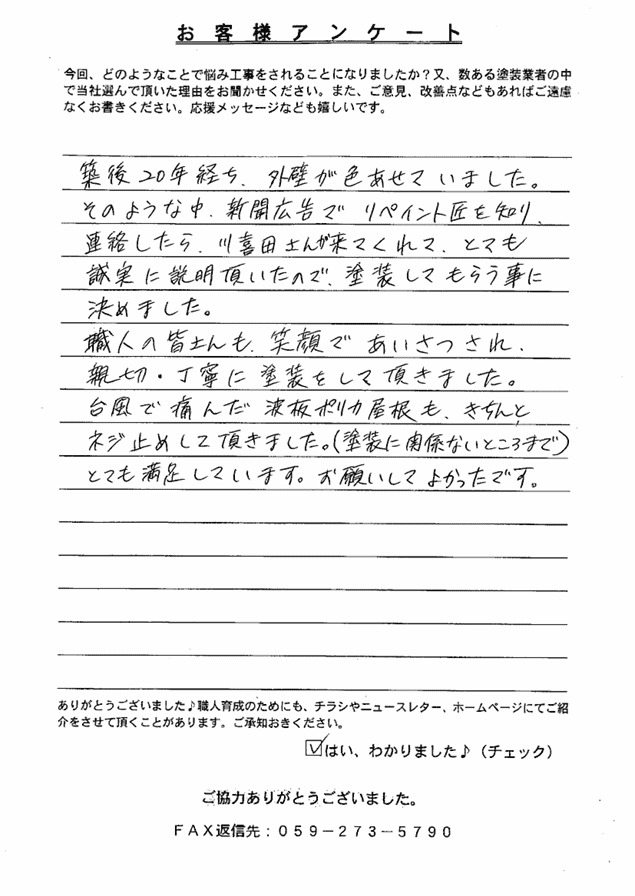 お客様アンケート
今回、どのようなことで悩み工事をされることになりましたか？又、数ある塗装業者の中
で当社選んで頂いた理由をお聞かせください。また、ご意見、改善点などもあればご遠慮
なくお書きください。応援メッセージなども嬉しいです。
築後20年経ち、外壁が色あせていました。
そのような中、新聞広告でリペイント匠を知り、
連絡したら、川喜田さんが来てくれて、とても
誠実に説明頂いたので、塗装してもらう事に
決めました。
職人の皆さんも、笑顔であいさつされ、
親切・丁寧に塗装をして頂きました。
台風で痛んだ波板ポリカ屋根も、きちんと
ネジ止めして頂きました。(塗装に関係ないところまで)
とても満足しています。お願いしてよかったです。
ありがとうございました♪職人育成のためにも、チラシやニュースレター、ホームページにてご紹
介をさせて頂くことがあります。ご承知おきください。
☑はい、わかりました♪（チェック）
ご協力ありがとうございました。
ＦＡＸ返信先：０５９－２７３－５７９０